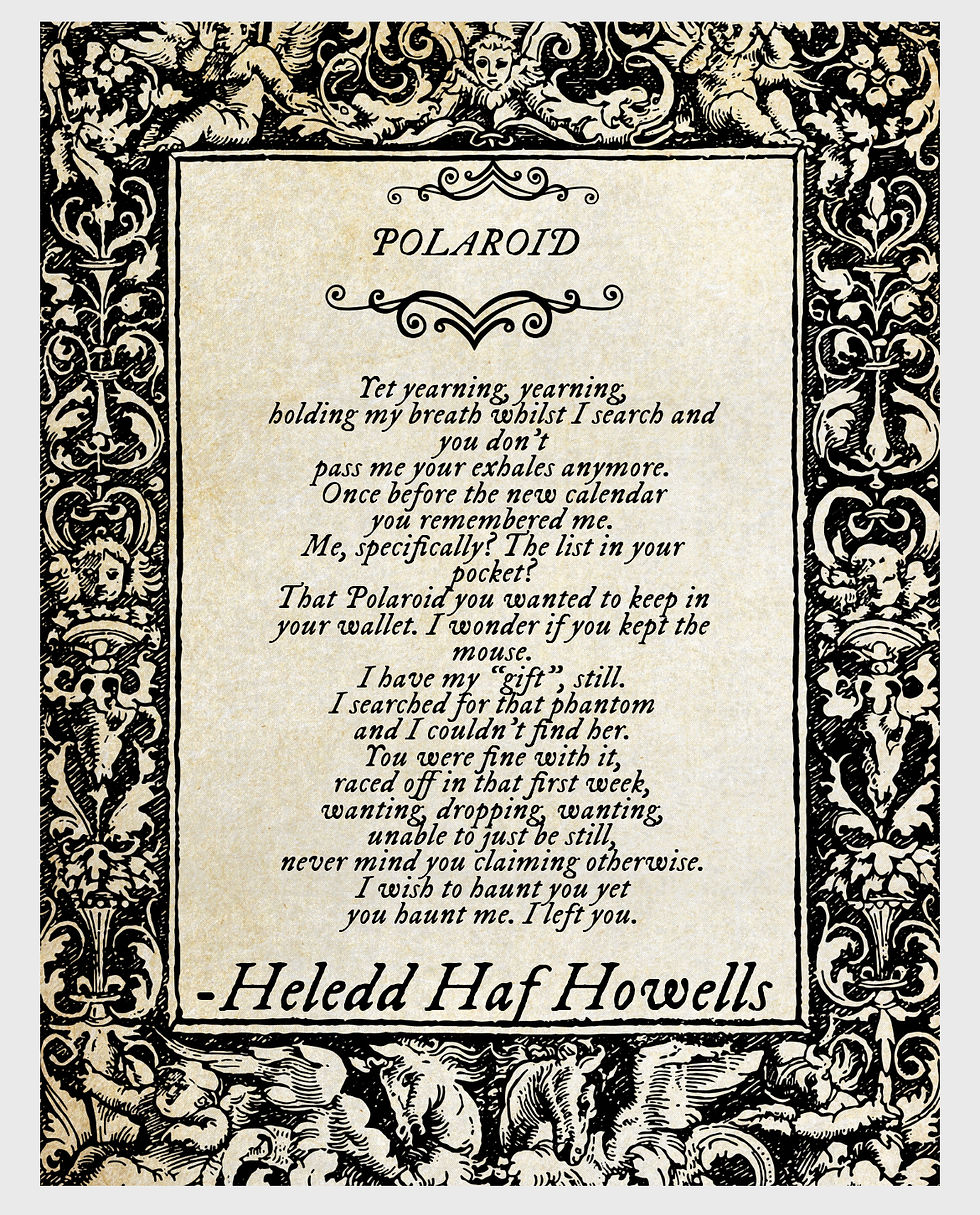 POLAROID
Yet yearning, yearning,
holding my breath whilst I search and
you don't
pass me your exhales anymore.
Once before the new calendar
you remembered me.
Me, specifically? The list in your
pocket?
That Polaroid you wanted to keep in
your wallet. I wonder if you kept the
mouse.
I have my “gift”, still.
I searched for that phantom
and I couldn't find her.
You were fine with it,
raced off in that first week,
wanting, dropping, wanting,
unable to just be still,
never mind you claiming otherwise.
I wish to haunt you yet
you haunt me. I left you.
-Heledd Haf Howells